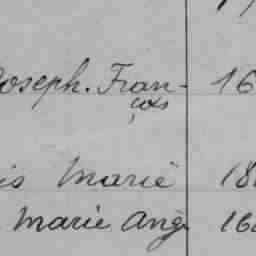 Joseph. Fran- 16
çois
is Marie 18
Marie Ang 16